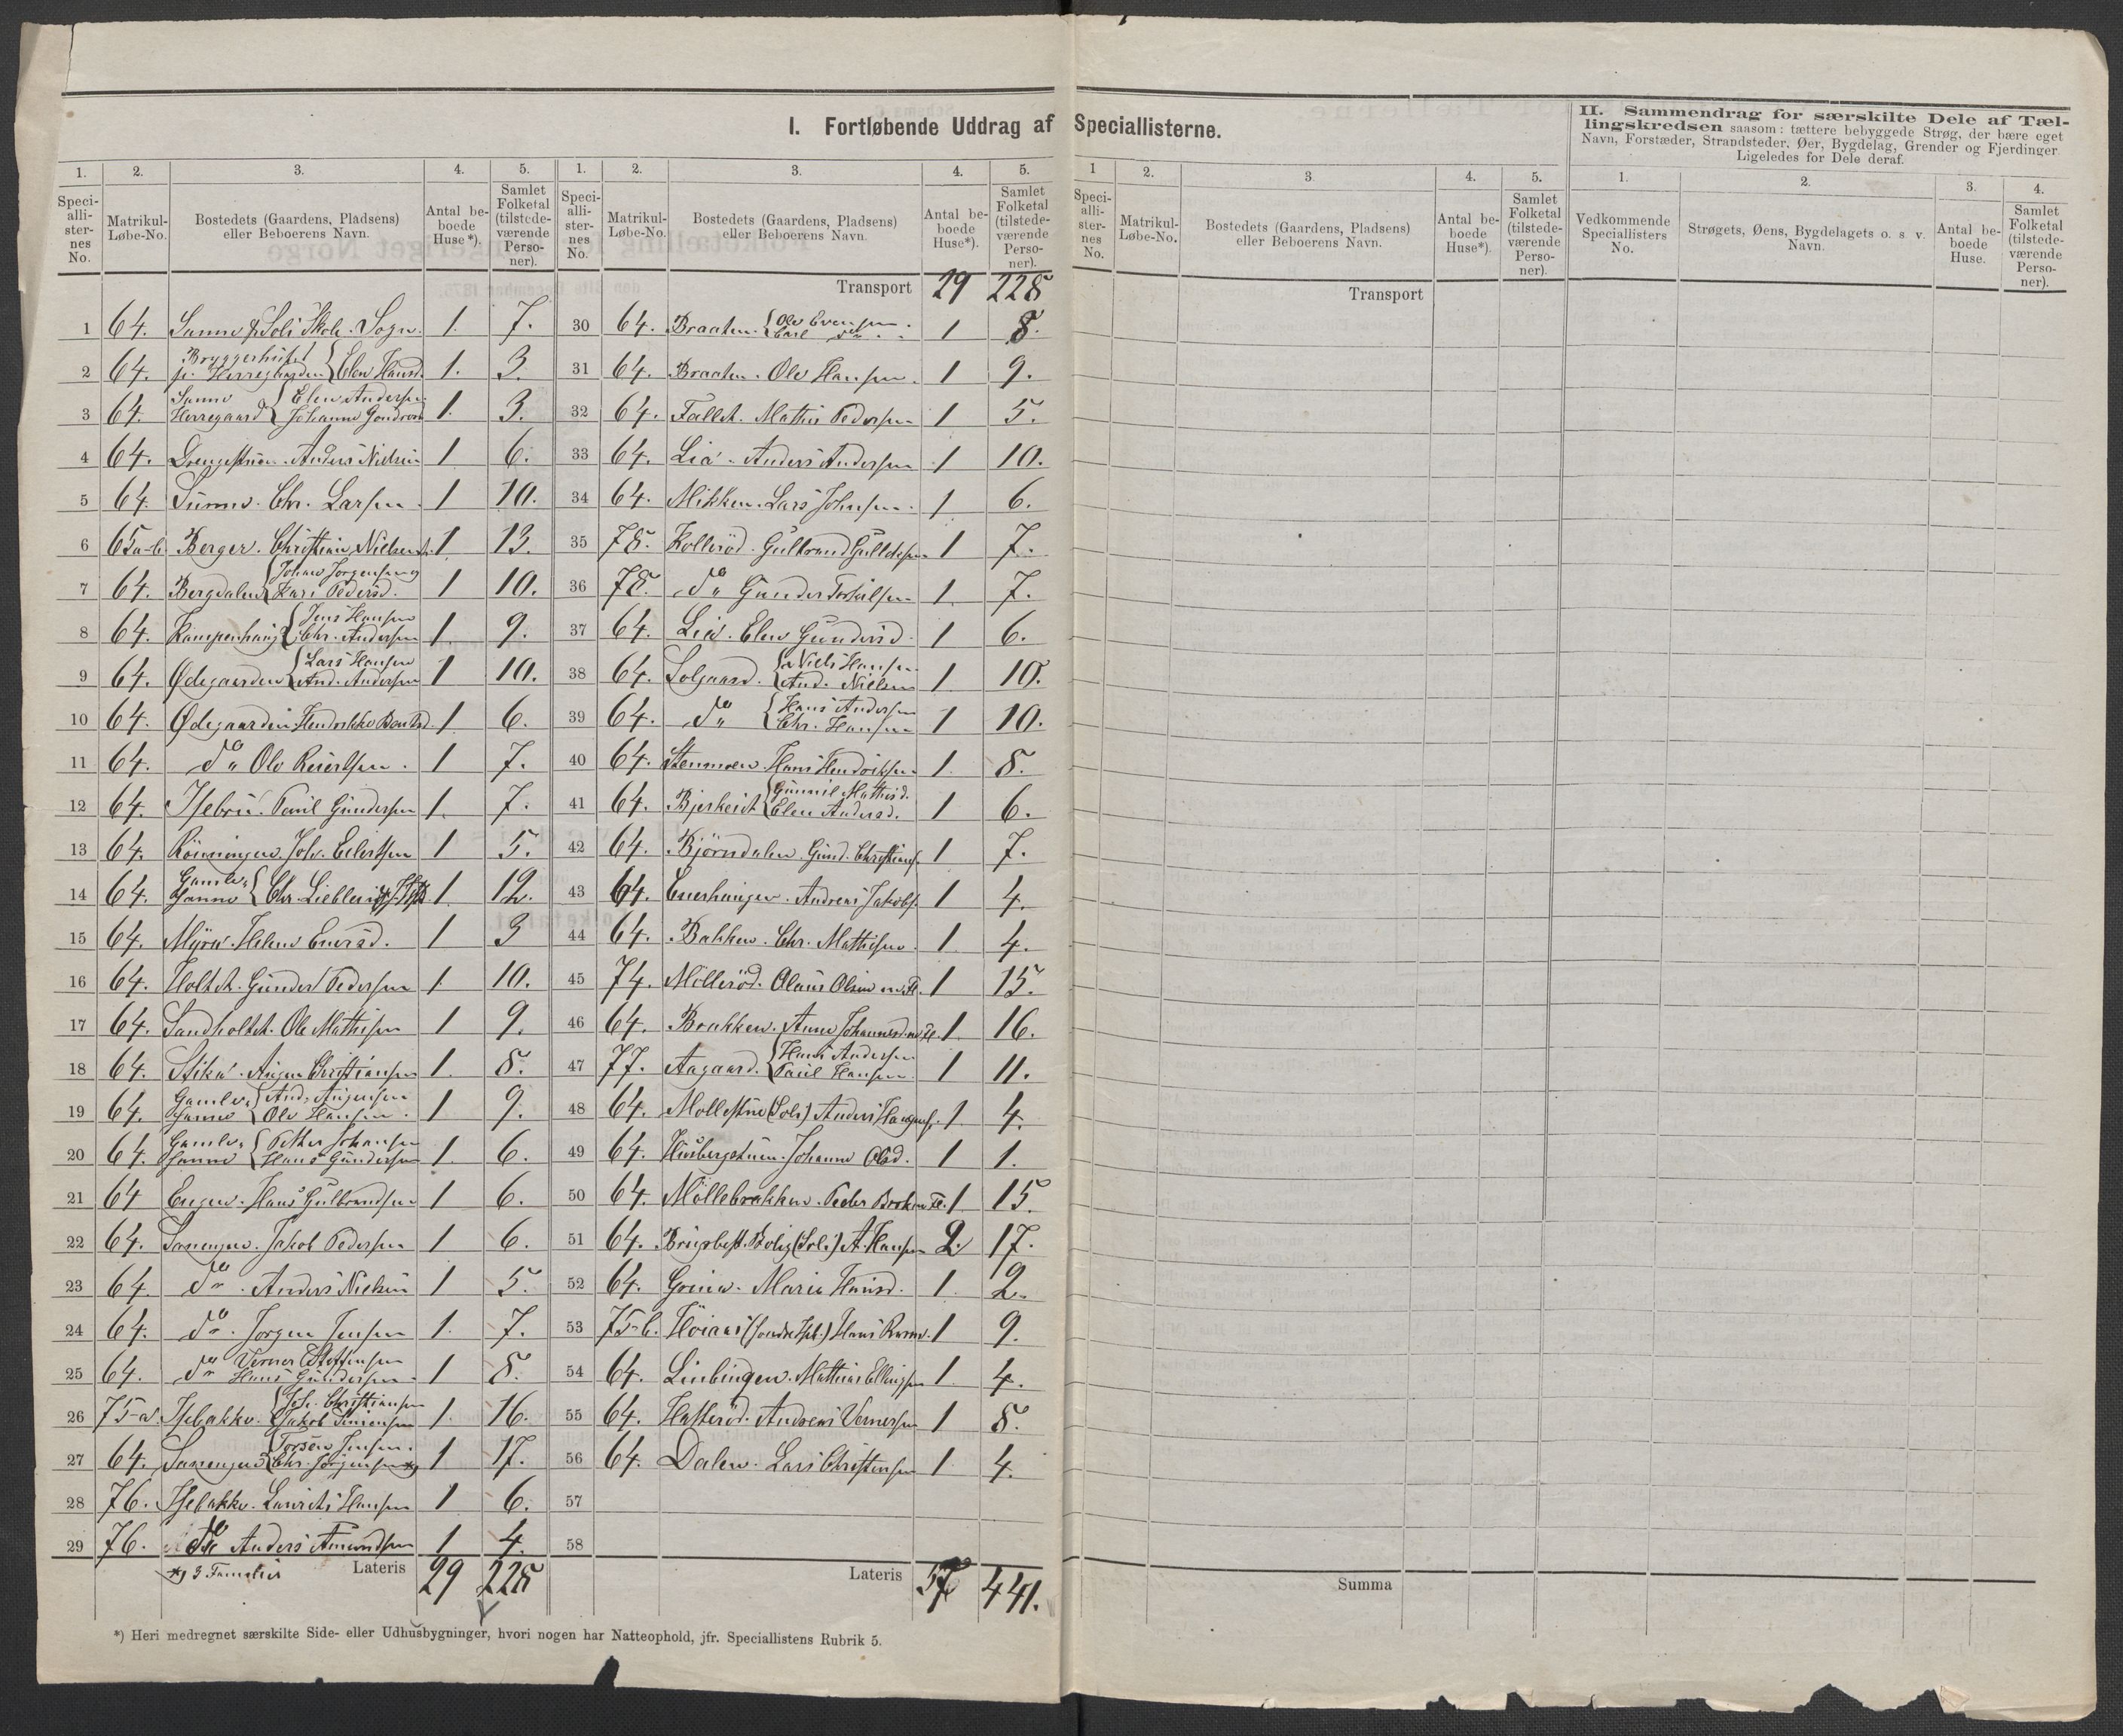 I. Fortløbende Uddrag af Speciallisterne.
II. Sammendrag for særskilte Dele af Tæl-
lingskredsen saasom: tættere bebyggede Strøg, der bære eget
Navn, Forstæder, Strandsteder, Øer, Bygdelag, Grender og Fjerdinger
Ligeledes for Dele deraf.
1. 2. 3. 4. 5. 1. 2. 3. 4. 5.
Speci-alli-ster-nes No. Matrikul-Løbe-No. Bostedets (Gaardens, Pladsens) eller Beboerens Navn. Antal be-boede Huse*). Samlet Folketal (tilstede-værende Perso-ner).
Speci-alli-ster-nes No. Matrikul-Løbe-No. Bostedets (Gaardens, Pladsens) eller Beboerens Navn. Antal be-boede Huse*). Samlet Folketal (tilstede-værende Perso-ner).
1 64. Sanne & Soli Skole. Sogn. 1. 7.
2 64. Bryggerhuset Herregaarden Elen Hansd. 1. 3.
3 64. Sanne Herregaard Elen Andersen Johanne 1. 3.
4 64. Drengestuen. Anders Nielsen 1 6.
5 64. Sunne. Chr. Larsen. 1 10.
6 65a-b Berger. Christian Nielsen 1. 13.
7 64. Bergdalen Johan Jorgensen og Kari Pedersd. 1 10.
8 64. Kampenhaug Jens Hansen Chr. Andersen 1 9.
9 64. Ødegaarden Lars Hansen And. Andersen 1 10.
10 64. Ødegaarden. Hendrikke 1 6.
11 64. do Ole Reiertsen. 1 7.
12 64. Isebru. Paul Gundersen 1. 7.
13 64. Rönningen. Joh. Eilertsen 1 5.
14 64. Gamle Sanne Chr. 1. 12.
15 64. Myra. Helene Enersd. 1 3
16 64. Holtet. Gunder Pedersen 1. 10.
17 64. Sandholtet. Ole Mathisen 1 9.
18 64. Stika. Christiansen 1. 8.
19 64. Gamle Sanne And. Ole Hansen. 1 9.
20 64. Gamle Sanne Petter Johansen Hans Gundersen 1. 6.
21 64 Engen. Hans Gulbrandsen 1 6.
22 64. Sanengen. Jakob Pedersen 1 6.
23 64 do. Anders Nielsen 1 5.
24 64. do. Jorgen Jensen 1. 7.
25 64. do Verner Hans Gundersen. 1 8.
26 75-a. Isebakke. Joh. Christiansen Jakob 1. 16.
27 64. Sanengen Jensen. Chr. Jorgensen *) 1 17.
28 76. Isebakke. Laurits Hansen 1 6.
29 76. do Anders Amundsen 1 4.
*) 3 Familier Lateris 29 228
Transport 29 228
30 64. Braaten. Ole Evensen. Carl do. 1 8.
31 64. Braaten. Ole Hansen. 1 9.
32 64. Fallet. Mathis Pedersen 1 5.
33 64. Lia. Anders Andersen 1 10.
34 64. Mikken. Lars Johnsen. 1 6.
35 78. Kolleröd. Gulbrand 1 7.
36 78. do Gunder 1. 7.
37 64. Lia. Elen Gundersd. 1 6.
38 64. Solgaard. Niels Hansen And. Nielsen 1. 10.
39 64. do Hans Andersen Chr. Hansen 1 10.
40 64. Hans Hendriksen 1. 8.
41 64. Gunnil Mathisd. Elen Andersd. 1 6.
42 64. Björndalen. Gund. Christians. 1 7.
43 64. Enerhaugen. Andreas Jakobs. 1 4.
44 64. Bakken. Chr. Mathisen. 1. 4.
45 74. Mölleröd. Olaus Olsen m. Fl. 1 15.
46 64. Brakken. Anne Johannesd. m. Fl. 1. 16.
47 77. Aagaard. Hans Andersen Paul Hansen. 1 11.
48 64. Mollestue (Soli) Anders 1. 4.
49 64. Johanne Olsd. 1 1.
50 64. Möllebrakken. Peder Fl. 1 15.
51 64. Brugsbest. Bolig (Soli) A. Hansen 2. 17.
52 64. Maria Hansd. 1. 2.
53 75-b. Hans 1 9.
54 64. Mathias Ellingsen 1. 4.
55 64. Hatteröd. Andreas Vernersen 1 8.
56 64. Dalen. Lars Christensen 1 4.
57
58
Lateris 57 441.
*) Heri medregnet særskilte Side- eller Udhusbygninger, hvori nogen har Natteophold, jfr. Speciallistens Rubrik 5.
1 2. 3. 4. 5. 1. 2. 3. 4.
Speci-alli-ster-nes No. Matrikul-Løbe-No. Bostedets (Gaardens, Pladsens) eller Beboerens Navn. Antal be-boede Huse*). Samlet Folketal (tilstede-værende Perso-ner).
Vedkommende Speciallisters No. Strøgets, Øens, Bygdelagets o. s. v. Navn. Antal be-boede Huse. Samlet Folketal (tilstede-værende Perso-ner).
Transport
Summa